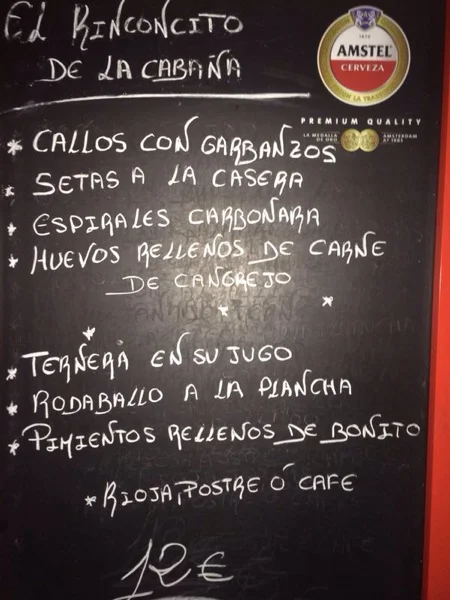 EL RINCONCITO
DE LA CABAÑA
1870
AMSTEL
CERVEZA
PREMIUM QUALITY
LA MEDALLA DE ORO
AMSTERDAM AT 1883
* CALLOS CON GARBANZOS
* SETAS A LA CASERA
* ESPIRALES CARBONARA
* HUEVOS RELLENOS DE CARNE
DE CANGREJO
* TERNERA EN SU JUGO
* RODABALLO A LA PLANCHA
* PIMIENTOS RELLENOS DE BONITO
* RIOJA, POSTRE Ó CAFE
12€